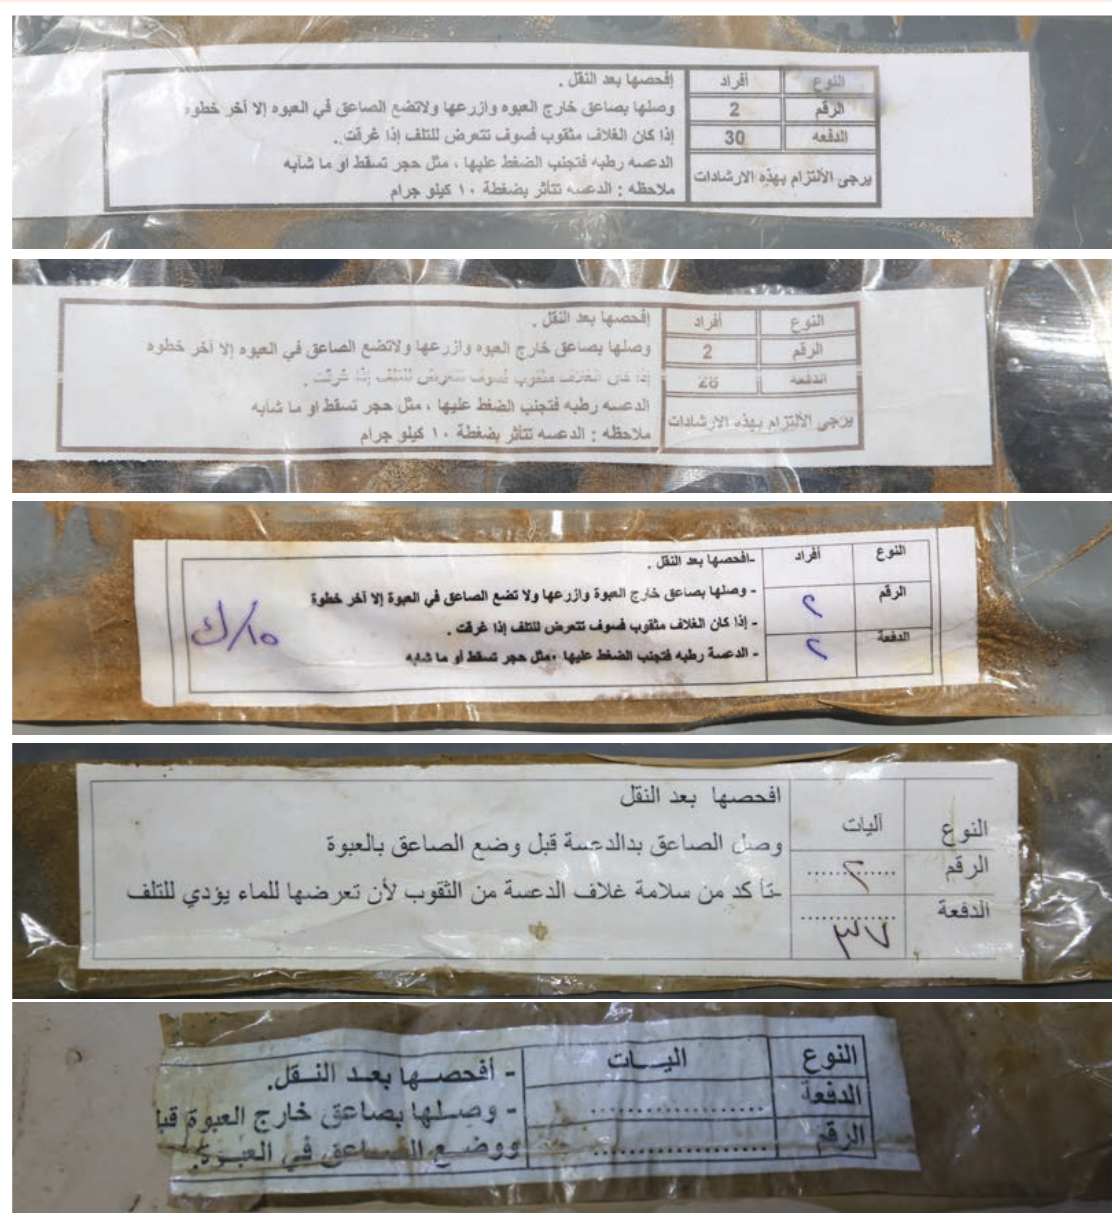 النوع أفراد
الرقم 2
الدفعه 30
يرجى الألتزام بهذه الارشادات
إفحصها بعد النقل .
وصلها بصاعق خارج العبوه وازرعها ولاتضع الصاعق في العبوه إلا آخر خطوه
إذا كان الغلاف مثقوب فسوف تتعرض للتلف إذا غرقت .
الدعسه رطبه فتجنب الضغط عليها ، مثل حجر تسقط او ما شابه
ملاحظه : الدعسه تتأثر بضغطة ١٠ كيلو جرام
النوع أفراد
الرقم 2
الدفعه 28
يرجى الألتزام بهذه الارشادات
إفحصها بعد النقل .
وصلها بصاعق خارج العبوه وازرعها ولاتضع الصاعق في العبوه إلا آخر خطوه
إذا كان الغلاف مثقوب فسوف تتعرض للتلف إذا غرقت .
الدعسه رطبه فتجنب الضغط عليها ، مثل حجر تسقط او ما شابه
ملاحظه : الدعسه تتأثر بضغطة ١٠ كيلو جرام
النوع أفراد
الرقم ٢
الدفعة ٢
-افحصها بعد النقل .
- وصلها بصاعق خارج العبوة وازرعها ولا تضع الصاعق في العبوة إلا آخر خطوة
- إذا كان الغلاف مثقوب فسوف تتعرض للتلف إذا غرقت .
- الدعسة رطبه فتجنب الضغط عليها ،مثل حجر تسقط أو ما شابه
١٥/ك
النوع آليات
الرقم ٢
الدفعة ٣٧
افحصها بعد النقل
وصل الصاعق بدالدعسة قبل وضع الصاعق بالعبوة
-تأ كد من سلامة غلاف الدعسة من الثقوب لأن تعرضها للماء يؤدي للتلف
النوع اليـــات
الدفعة ..................
الرقم ..................
- أفحصـــها بعـد النــقل.
- وصـــلها بصاعق خارج العبوة قبا
ووضـــع الصـــاعق في العبـوة.